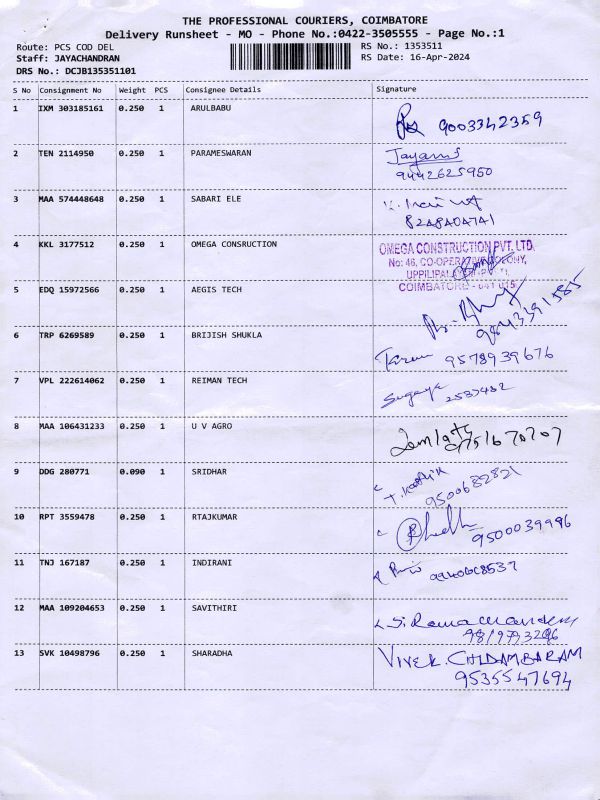 THE PROFESSIONAL COURIERS, COIMBATORE
Delivery Runsheet - MO - Phone No.:0422-3505555 - Page No.:1
Route: PCS COD DEL RS No.: 1353511
Staff: JAYACHANDRAN RS Date: 16-Apr-2024
DRS No.: DCJB135351101
S No Consignment No Weight PCS Consignee Details Signature
1 IXM 303185161 0.250 1 ARULBABU
9003342359
2 TEN 2114950 0.250 1 PARAMESWARAN
9442625950
3 MAA 574448648 0.250 1 SABARI ELE
8248404741
4 KKL 3177512 0.250 1 OMEGA CONSRUCTION
OMEGA CONSTRUCTION PVT. LTD.
No: 46, CO-OPERATIVE COLONY,
COIMBATORE - 641 015
5 EDQ 15972566 0.250 1 AEGIS TECH
9843391585
6 TRP 6269589 0.250 1 BRIJISH SHUKLA
9578939676
7 VPL 222614062 0.250 1 REIMAN TECH
Sugaya 2537482
8 MAA 106431233 0.250 1 U V AGRO
9 DDG 280771 0.090 1 SRIDHAR
T. Karthik
9500682821
10 RPT 3559478 0.250 1 RTAJKUMAR
9500039996
11 TNJ 167187 0.250 1 INDIRANI
12 MAA 109204653 0.250 1 SAVITHIRI
13 SVK 10498796 0.250 1 SHARADHA
VIVEK. CHIDAMBARAM
9535547694